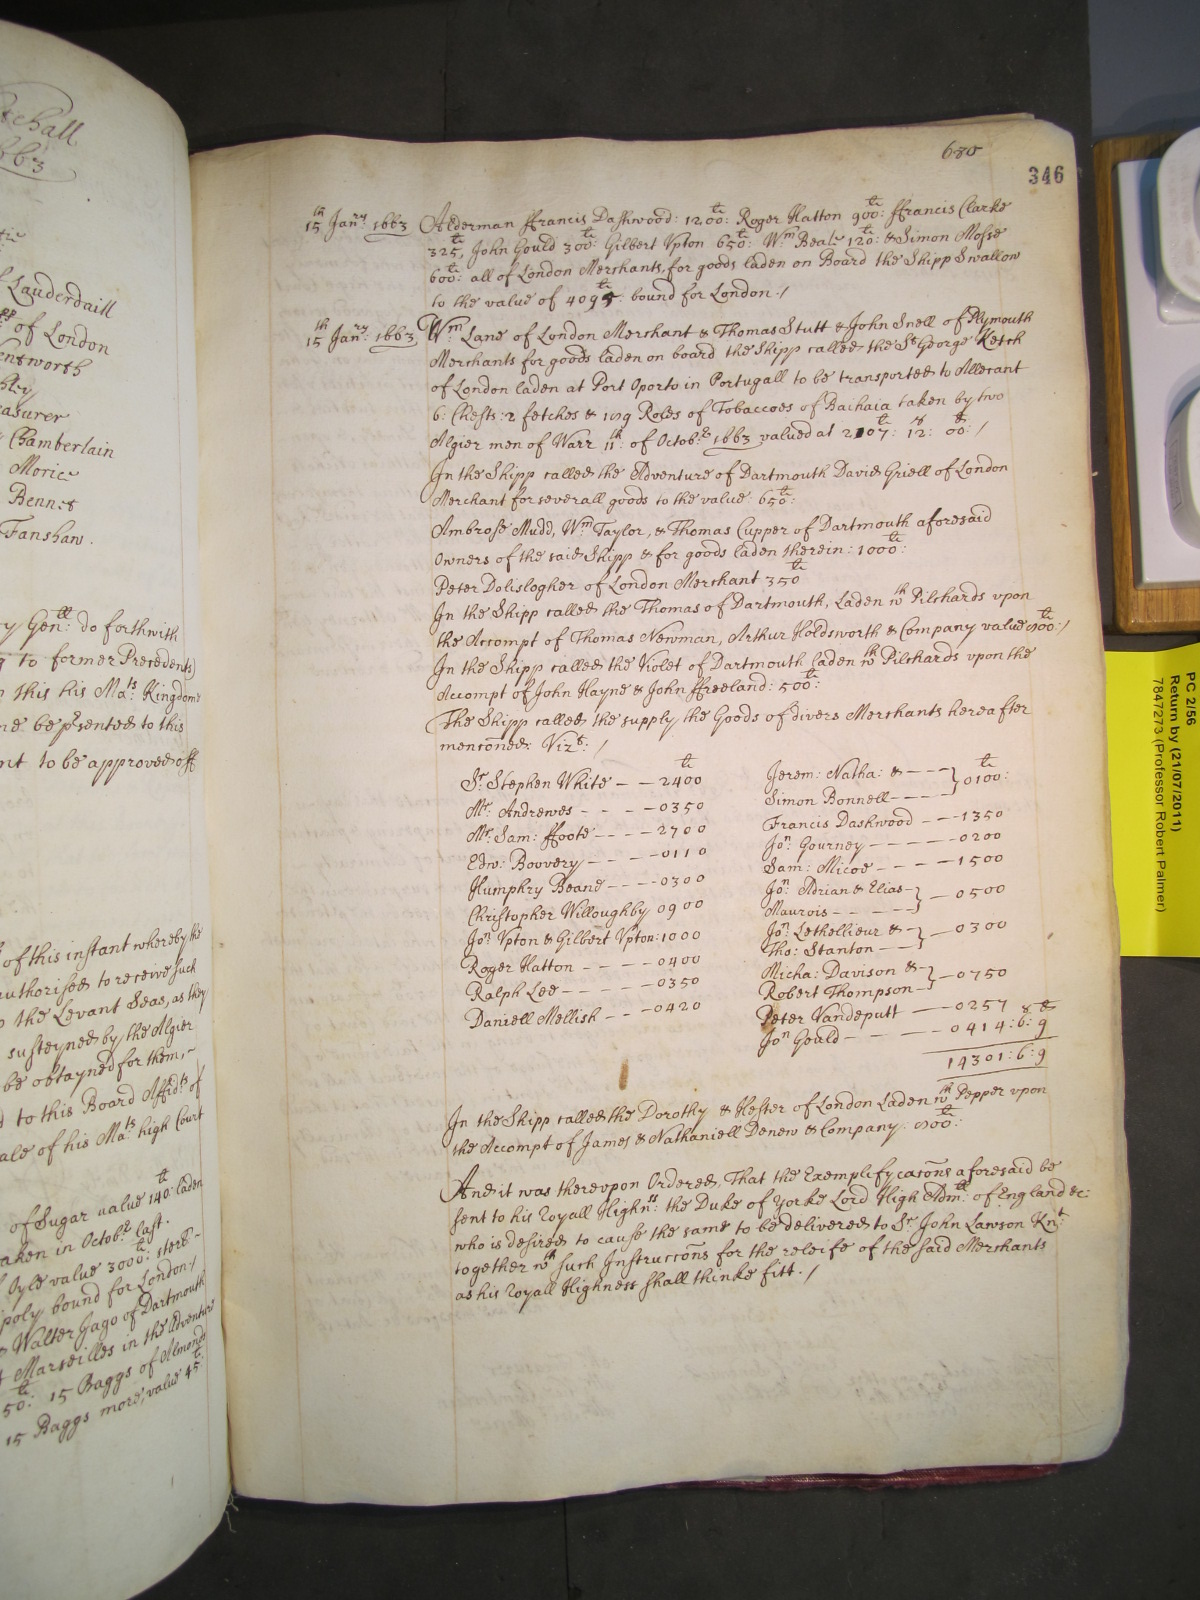 chall
663
Lauderdaill
of London
entsworth
hley
easurer
Chamberlain
Morice
Bennet
Fanshaw.
ry Gen:ll do forthwith
g to former Precedents)
this his Ma:ts Kingdome
ne be p~sented to this
nt to be approved off
of this instant whereby the
authorised to receive such
the Levant Seas, as they
susteyned by the Algier
be obtayned for them,-
d to this Board Affid:ts of
ale of his Ma:ts high Court
of Sugar value 140:li laden
aken in Octob:r last.
Oyle value 3000:li sterl-
poly bound for London /
Walter Gago of Dartmouth
Marseilles in the Adventure
50:li 15 Baggs of Almonds
15 Baggs more, value 45:li
680
346
15th Jan:ry 1663 Alderman ffrancis Dashwood: 1200:li Roger Hatton 900:li ffrancis Clarke
325li, John Gould 300:li Gilbert Vpton 650:li Wm Beale 120:li & Simon Mosse
600:li all of London Merchants, for goods laden on Board the Shipp Swallow
to the value of 4095li bound for London /
15th Jan:ry 1663 Wm Lane of London Merchant & Thomas Stutt & John Snell of Plymouth
Merchants for goods laden on board the Shipp called the St George Ketch
of London laden at Port Oporto in Portugall to be transported to Allecant
6: Chests: 2 fetches & 119 Roles of Tobaccoes of Baihaia taken by two
Algier men of Warr 11th of Octob:r 1663 valued at 2107:li 12:s 00:d /
In the Shipp called the Adventure of Dartmouth David Griell of London
Merchant for severall goods to the value: 650:li
Ambrose Mudd, Wm Taylor, & Thomas Cupper of Dartmouth aforesaid
Owners of the said Shipp & for goods laden therein: 1000:li
Peter Dolislogher of London Merchant 350li
In the Shipp called the Thomas of Dartmouth, Laden wth Pilchards vpon
the Accompt of Thomas Newman, Arthur Holdsworth & Company value 900:li /
In the Shipp called the Violet of Dartmouth laden wth Pilchards vpon the
Accompt of John Hayne & John ffreeland: 500:li
The Shipp called the supply the Goods of divers Merchants hereafter
mencõned: Vizt: /
Sr Stephen White - - 2400li
Mr: Andrewes - - - - 0350
Mr: Sam: ffoote - - - 2700
Edw: Bovvery - - - 0110
Humphry Beane - - - 0300
Christopher Willoughby 0900
Jon: Vpton & Gilbert Vpton: 1000
Roger Hatton - - - - 0400
Ralph Lee - - - - - 0350
Daniell Mellish - - - 0420
Jerem: Natha: & - - - } 0100:li
Simon Bonnell - - - -
Francis Dashwood - - - 1350
Jon: Gourney - - - - - 0200
Sam: Micoe - - - - 1500
Jon: Adrian & Elias - } - 0500
Maurois - - - - -
Jon: Lethellieur & - } - 0300
Tho: Stanton - - -
Micha: Davison & - } - 0750
Robert Thompson -
Peter Vandeputt - - 0257 s d
Jon Gould - - - - - 0414:6:9
14301:6:9
In the Shipp called the Dorothy & Hester of London Laden wth Pepper vpon
the Accompt of James & Nathaniell Denew & Company: 900:li
And it was therevpon Ordered, That the Exemplifycacõns aforesaid be
sent to his Royall Highn:ss the Duke of Yorke Lord High Adm:ll of England &c:
who is desired to cause the same to be delivered to Sr John Lawson Knt
together wth such Instruccõns for the releife of the said Merchants
as his Royall Highness shall thinke fitt. /
PC 2/56
Return by (21/07/2011)
7847273 (Professor Robert Palmer)